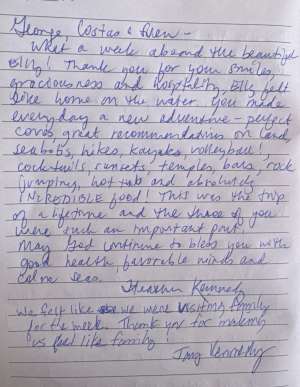 George, Costas & Fuen -
What a week aboard the beautiful
Billy! Thank you for your smiles,
graciousness and hospitality. Billy felt
like home on the water. You made
everyday a new adventure - perfect
coves, great recommendations on land,
seabobs, hikes, kayaks, volleyball!,
cocktails, sunsets, temples, bars, rock
jumping, hot tub and absolutely
INCREDIBLE food! This was the trip
of a lifetime and the three of you
were such an important part.
May God continue to bless you with
good health, favorable winds and
calm seas.
Heather Kennedy
We felt like we were visiting family
for the week. Thank you for making
us feel like family
Kennedy